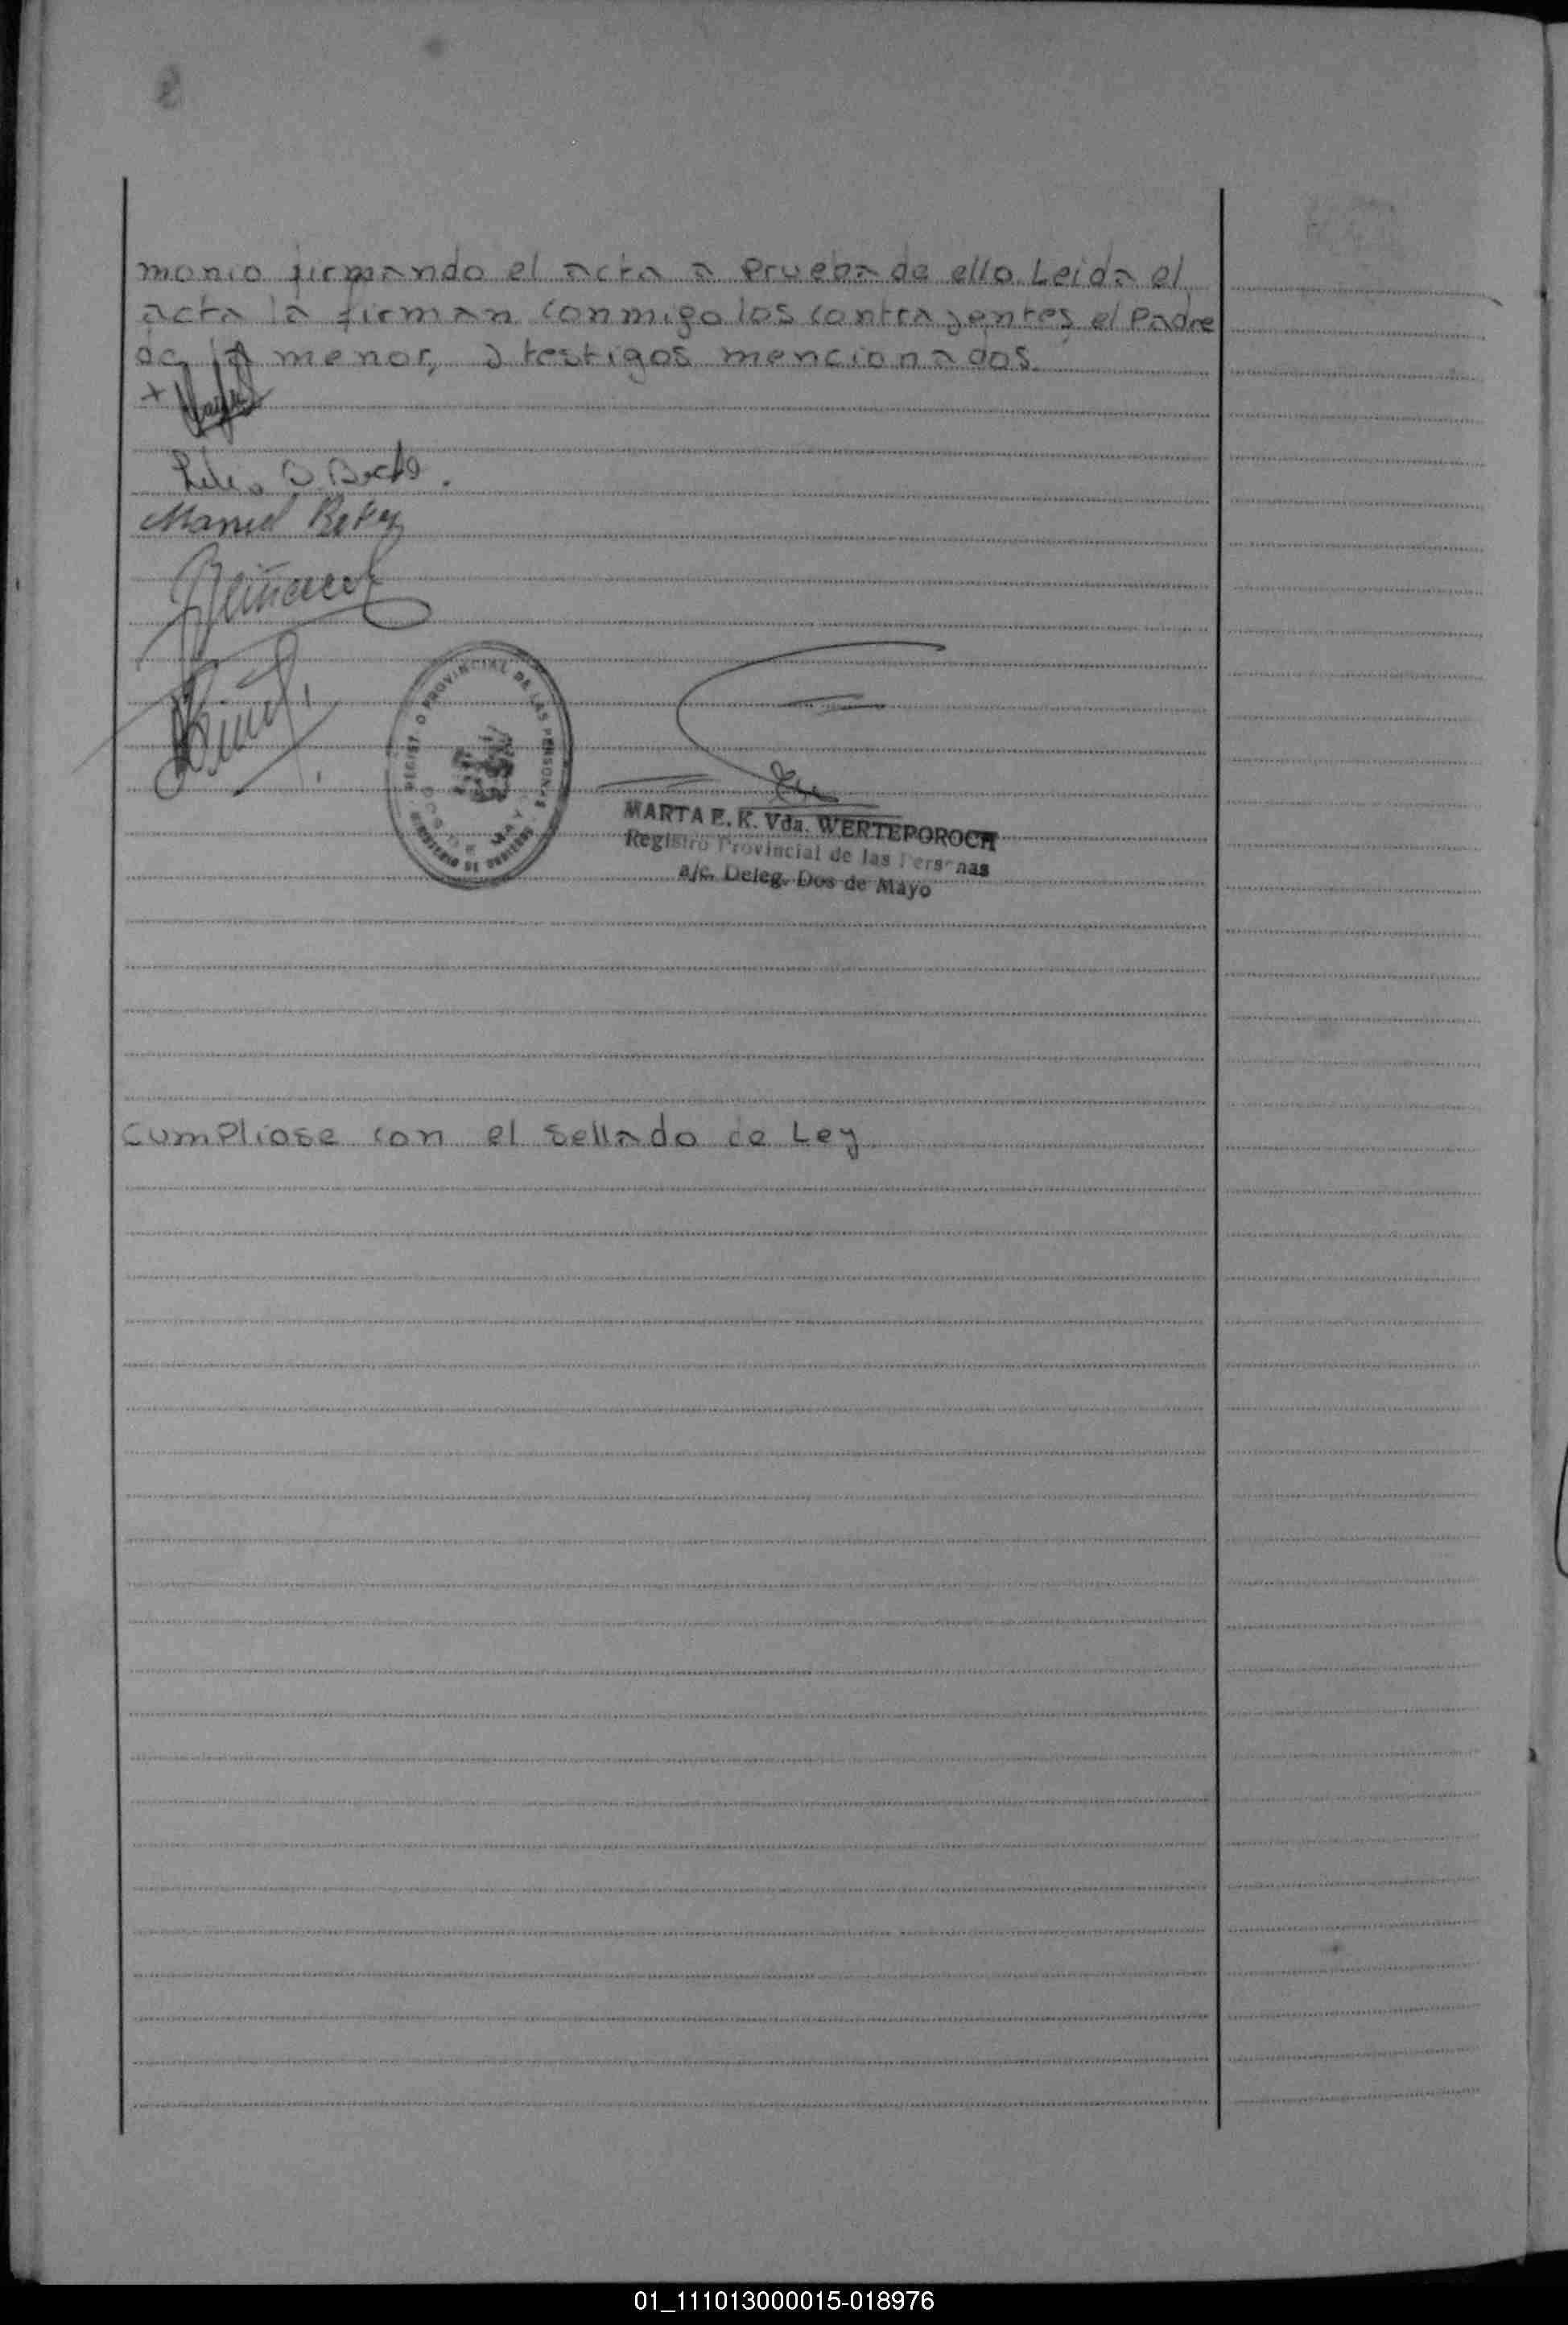 monio firmando el acta a prueba de ello. Leida el
acta la firman conmigo los contrayentes, el Padre
de la menor, y testigos mencionados.
Manuel
REGISTRO PROVINCIAL DE LAS PERSONAS
MINISTERIO DE GOBIERNO
DOS DE MAYO
MARTA E. K. Vda. WERTEPOROCH
Registro Provincial de las Personas
a/c. Deleg. Dos de Mayo
Cumpliose con el sellado de Ley
01_111013000015-018976